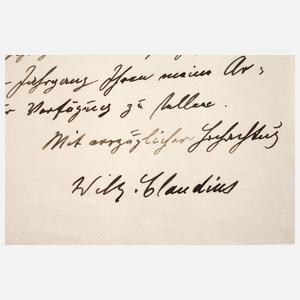 Jahrgang Ihnen meine Ar=
zur Verfügung zu stellen.
Mit vorzüglicher Hochachtung
Wilh. Claudius